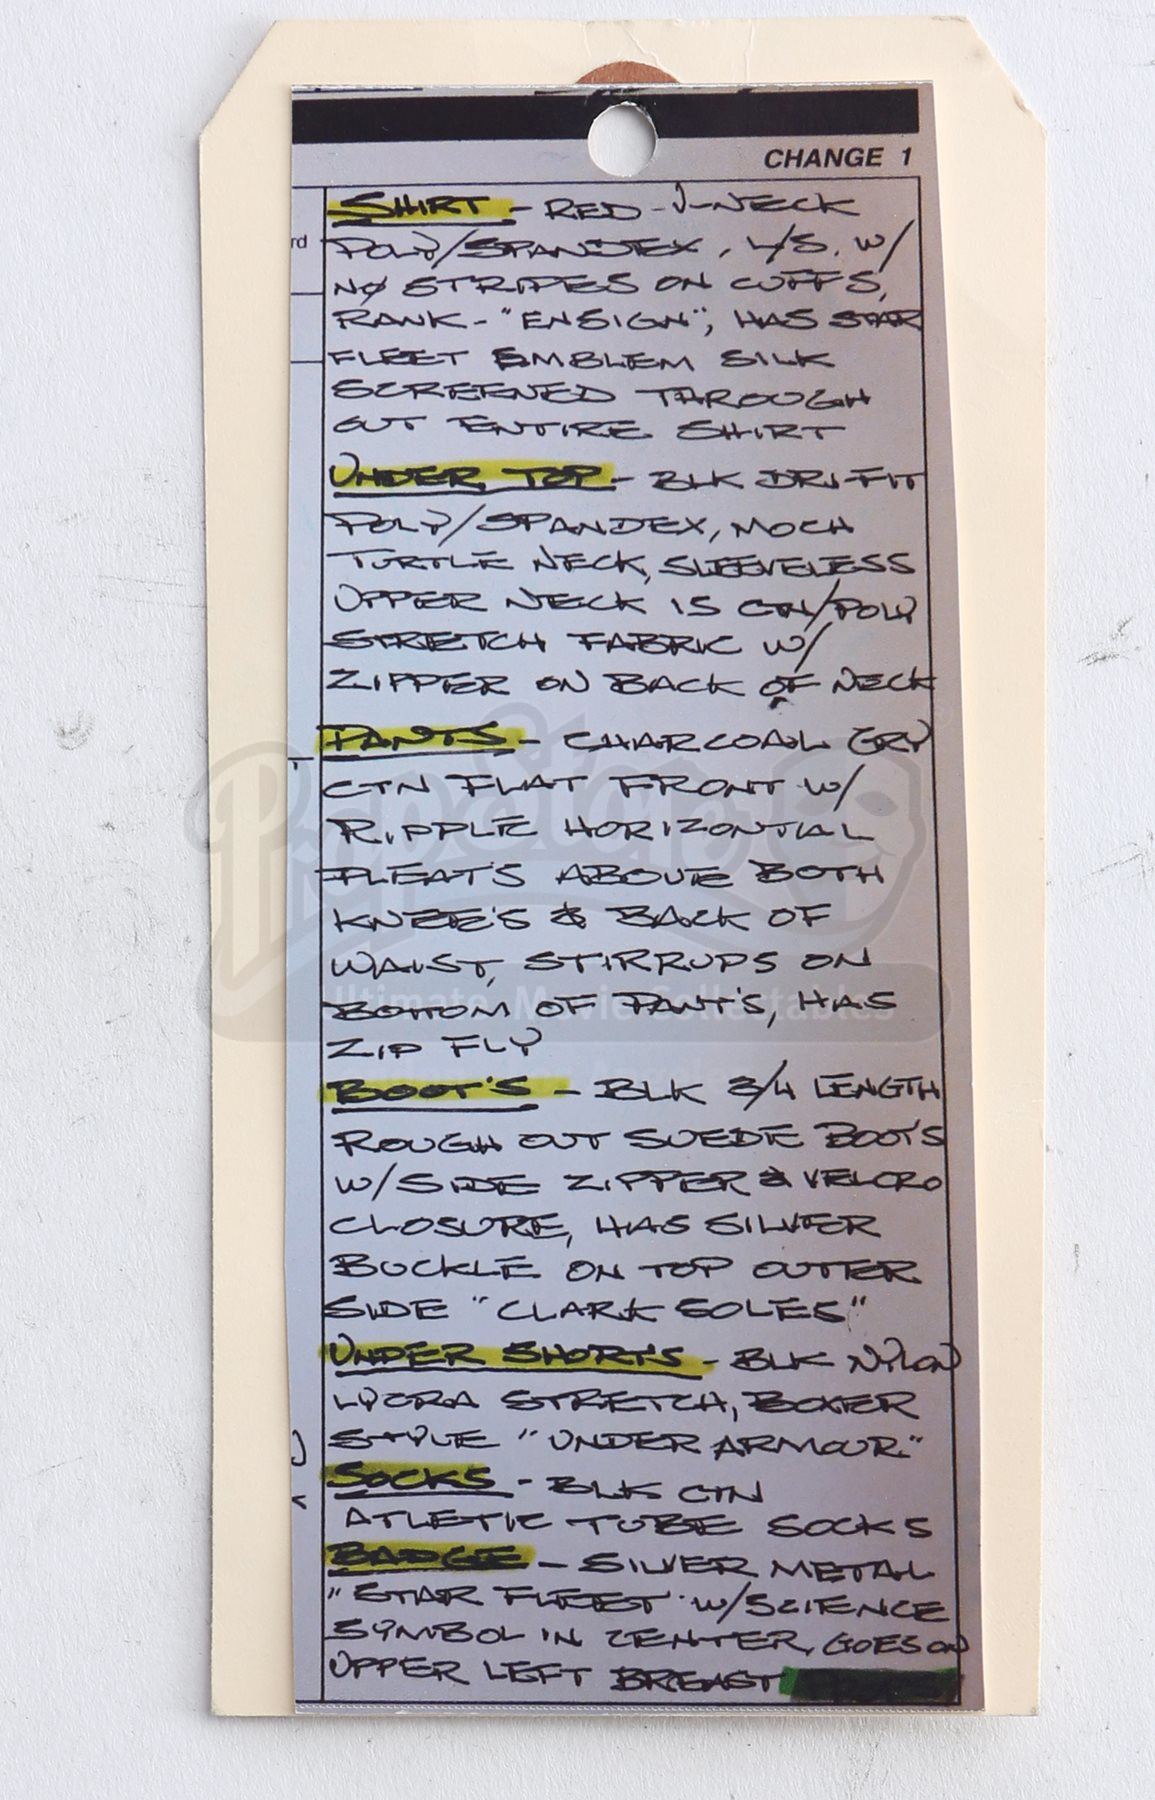 CHANGE 1
rd
SHIRT - RED V-NECK
POLY/SPANDEX, L/S. W/
NO STRIPES ON CUFFS,
RANK - "ENSIGN", HAS STAR
FLEET EMBLEM SILK
SCREENED THROUGH
OUT ENTIRE SHIRT
UNDER TOP - BLK DRI-FIT
POLY/SPANDEX, MOCH
TURTLE NECK, SLEEVELESS
UPPER NECK IS CTN/POLY
STRETCH FABRIC W/
ZIPPER ON BACK OF NECK
PANTS - CHARCOAL GRY
CTN FLAT FRONT W/
RIPPLE HORIZONTIAL
PLEAT'S ABOVE BOTH
KNEE'S & BACK OF
WAIST, STIRRUPS ON
BOTTOM OF PANT'S, HAS
ZIP FLY
BOOT'S - BLK 3/4 LENGTH
ROUGH OUT SUEDE BOOT'S
W/SIDE ZIPPER & VELCRO
CLOSURE, HAS SILVER
BUCKLE ON TOP OUTER
SIDE "CLARK SOLES"
UNDER SHORT'S - BLK NYLON
LYCRA STRETCH, BOXER
STYLE "UNDER ARMOUR"
SOCKS - BLK CTN
ATLETIC TUBE SOCKS
BADGE - SILVER METAL
"STAR FLEET" W/SCIENCE
SYMBOL IN CENTER, GOES ON
UPPER LEFT BREAST
Propstore
Ultimate Movie Collectables